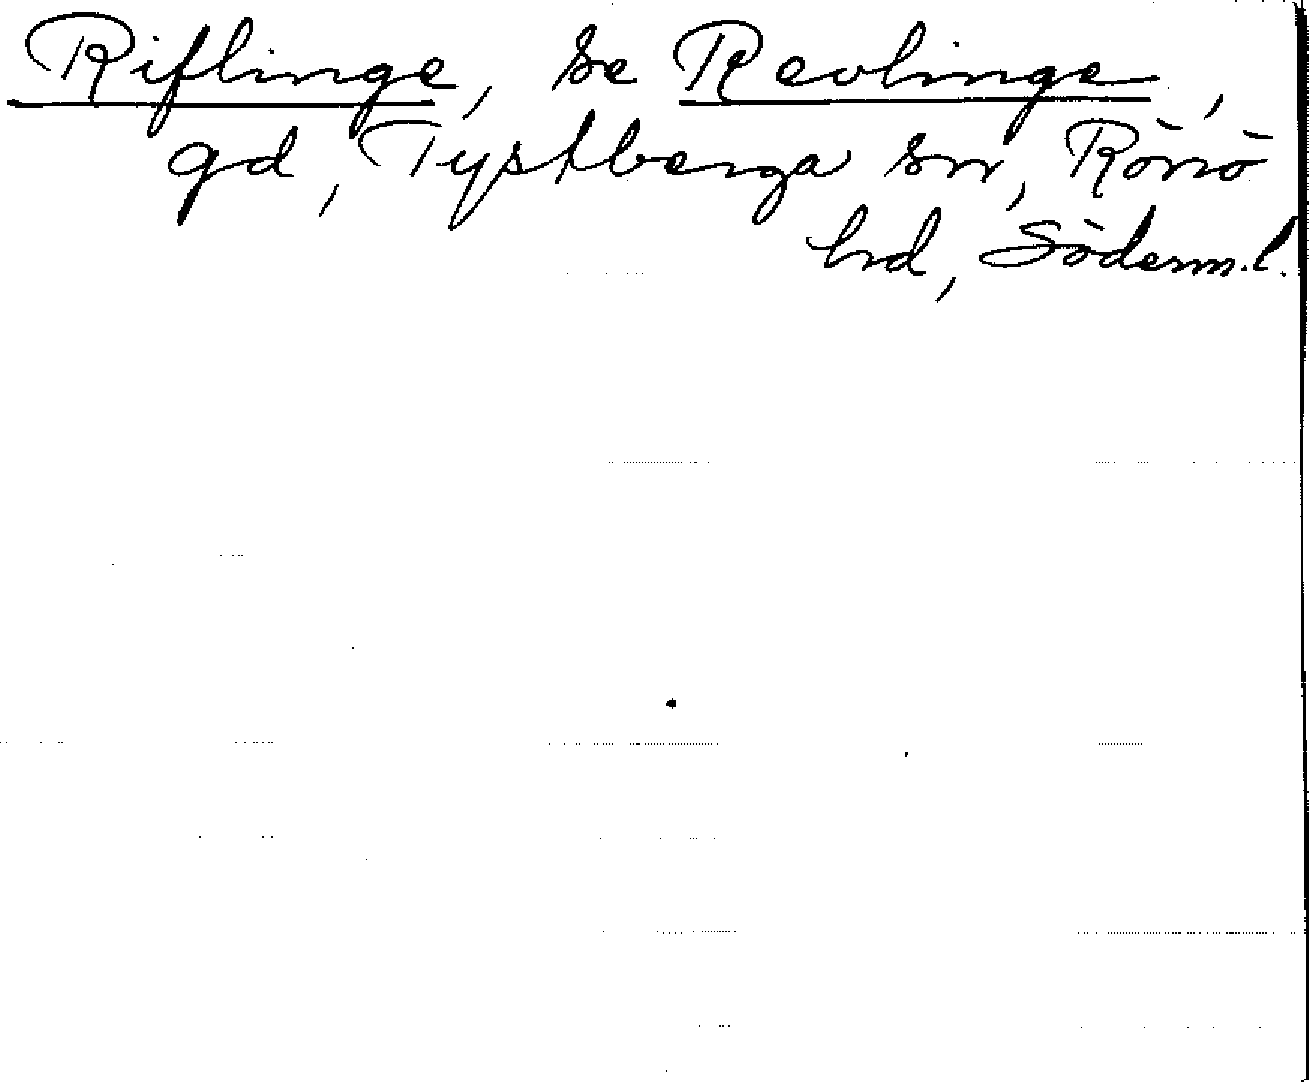 Riflinge, se Revlinge,
gd, Tystberga sn, Rönö
hd, Söderm.l.